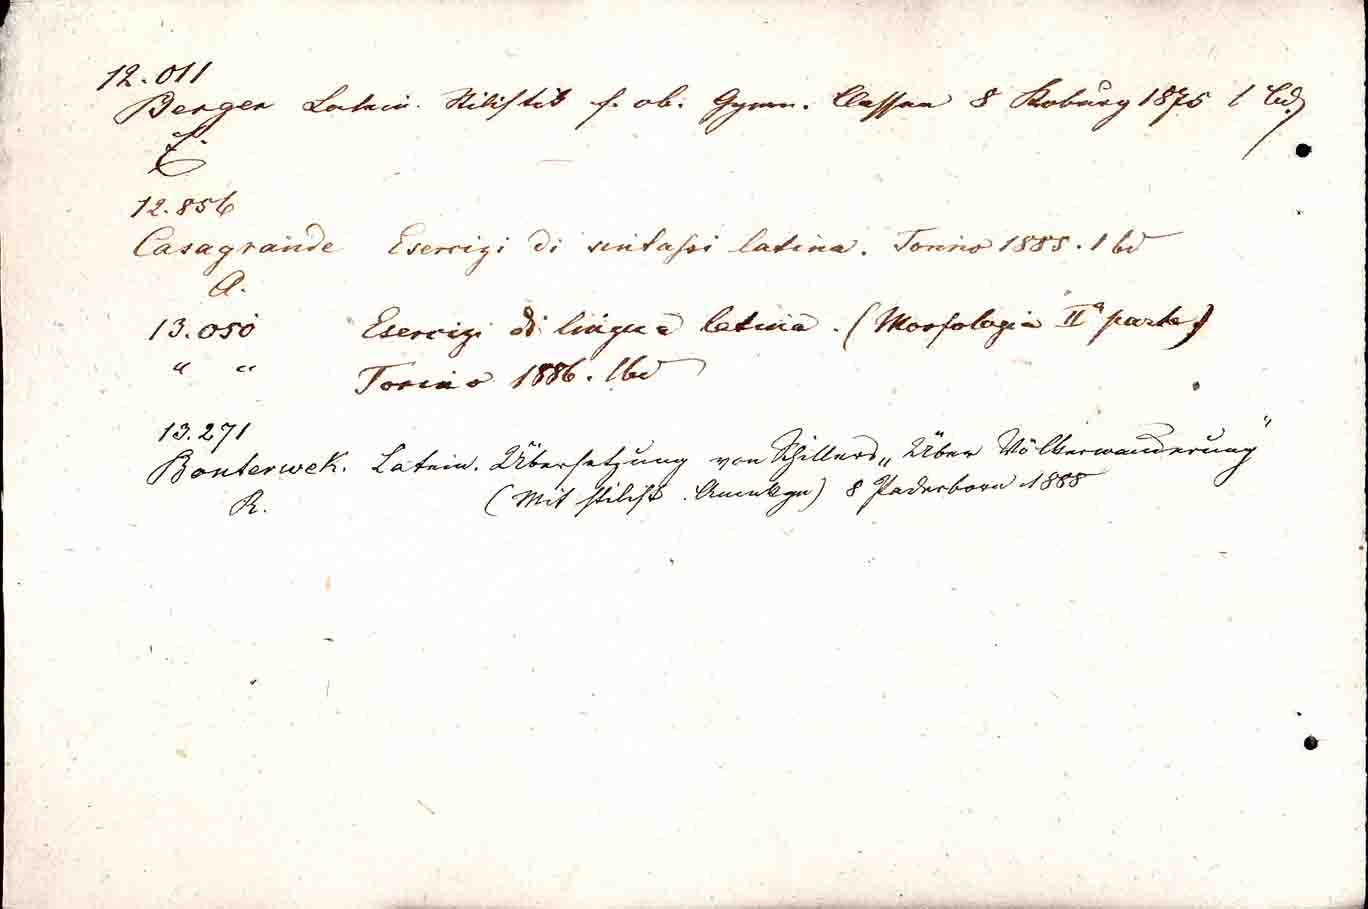 12.011
Berger Latein. Stilistik f. ob. Gymn. Classen 8 Koburg 1875 1 bd
E.
12.856
Casagrande Esercizi di sintassi latina. Torino 1885. 1 bd
A.
13.050 Esercizi di lingua latina. (Morfologia IIa parte)
" " Torino 1886. 1 bd
13.271
Bouterwek. Latein. Übersetzung von Schillers „Über Völkerwanderung"
R. (Mit stilist. Anmkgn) 8 Paderborn 1888